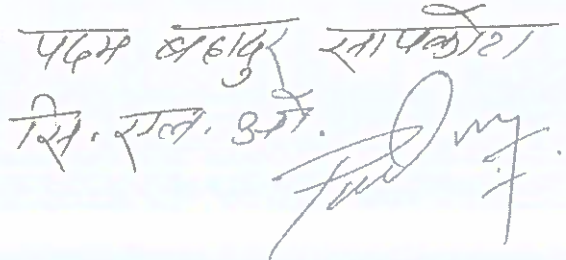 पदम बहादुर सापकोटा
सि. एल. ओ.